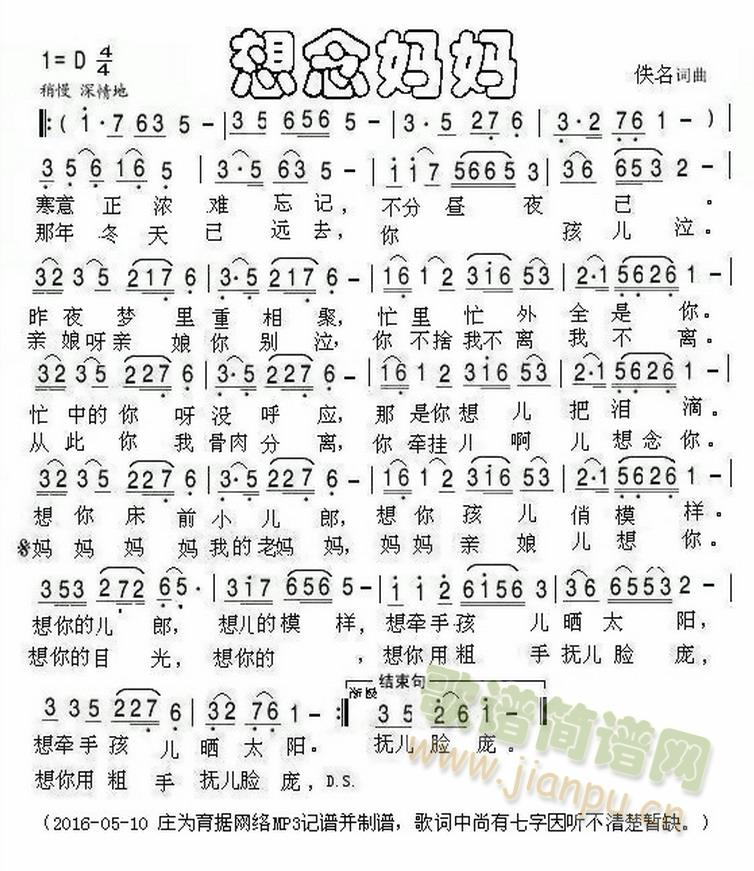 想念妈妈
1=D 4/4
稍慢 深情地
佚名词曲
‖:( i·7 63 5 - | 35 656 5 - | 3·5 27 6 | 3·2 76 1 - ) |
3 5 6 16 5 | 3·5 63 5 - | i i i7 5665 3 | 36 653 2 - |
寒意正浓难忘记，不分昼夜已。
那年冬天已远去，你孩儿泣。
32 35 217 6 | 3·5 217 6 - | 16 12 3i6 53 | 2·1 5626 1 - |
昨夜梦里重相聚，忙里忙外全是你。
亲娘呀亲娘你别泣，你不捨我不离我不离。
32 35 227 6 | 3·5 227 6 - | 16 12 3i6 53 | 2·1 5626 1 - |
忙中的你呀没呼应，那是你想儿把泪滴。
从此你我骨肉分离，你牵挂儿啊儿想念你。
32 35 227 6 | 3·5 227 6 - | 16 12 3i6 53 | 2·1 5626 1 - |
想你床前小儿郎，想你孩儿俏模样。
妈妈妈妈我的老妈妈，妈妈亲娘儿想你。
353 272 65· | 3i7 656 5 - | i i 2 6i56 3 | 36 6553 2 - |
想你的儿郎，想儿的模样，想牵手孩儿晒太阳，
想你的目光，想你的，想你用粗手抚儿脸庞，
3 35 227 6 | 32 76 1 - :‖ 结束句 渐慢 35 26 i - ‖
想牵手孩儿晒太阳。抚儿脸庞。
想你用粗手抚儿脸庞，D.S.
(2016-05-10 庄为育据网络MP3记谱并制谱，歌词中尚有七字因听不清楚暂缺。)
歌谱简谱网
www.jianpu.cn